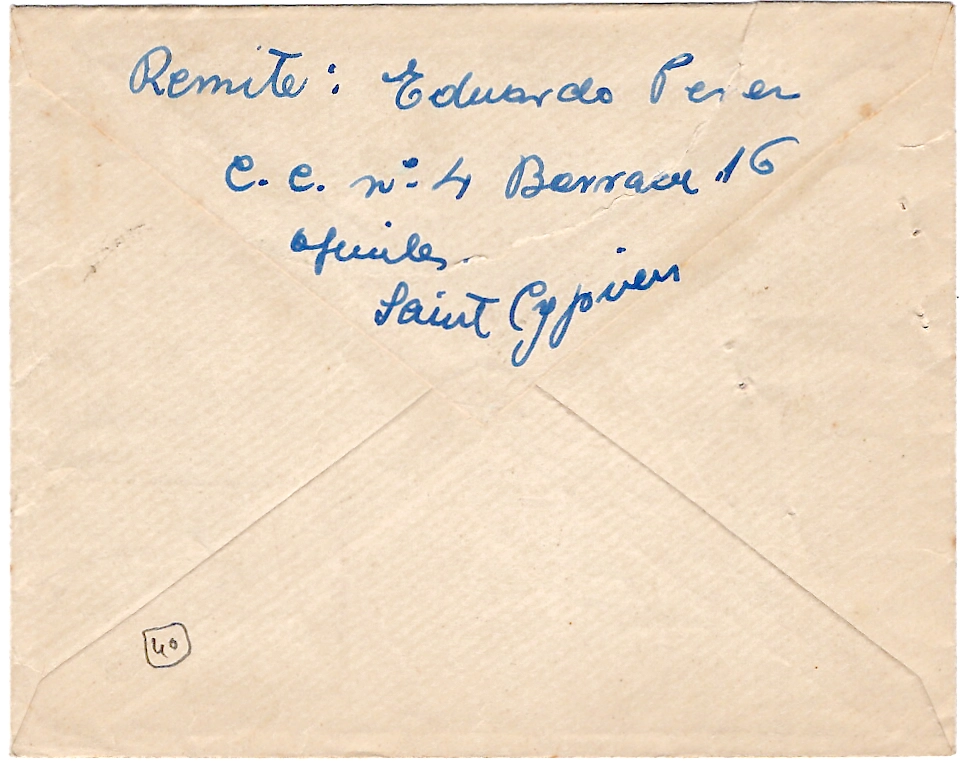 Remite: Eduardo Perez
C. C. nº 4 Barraca 16
Saint Cyprien
40